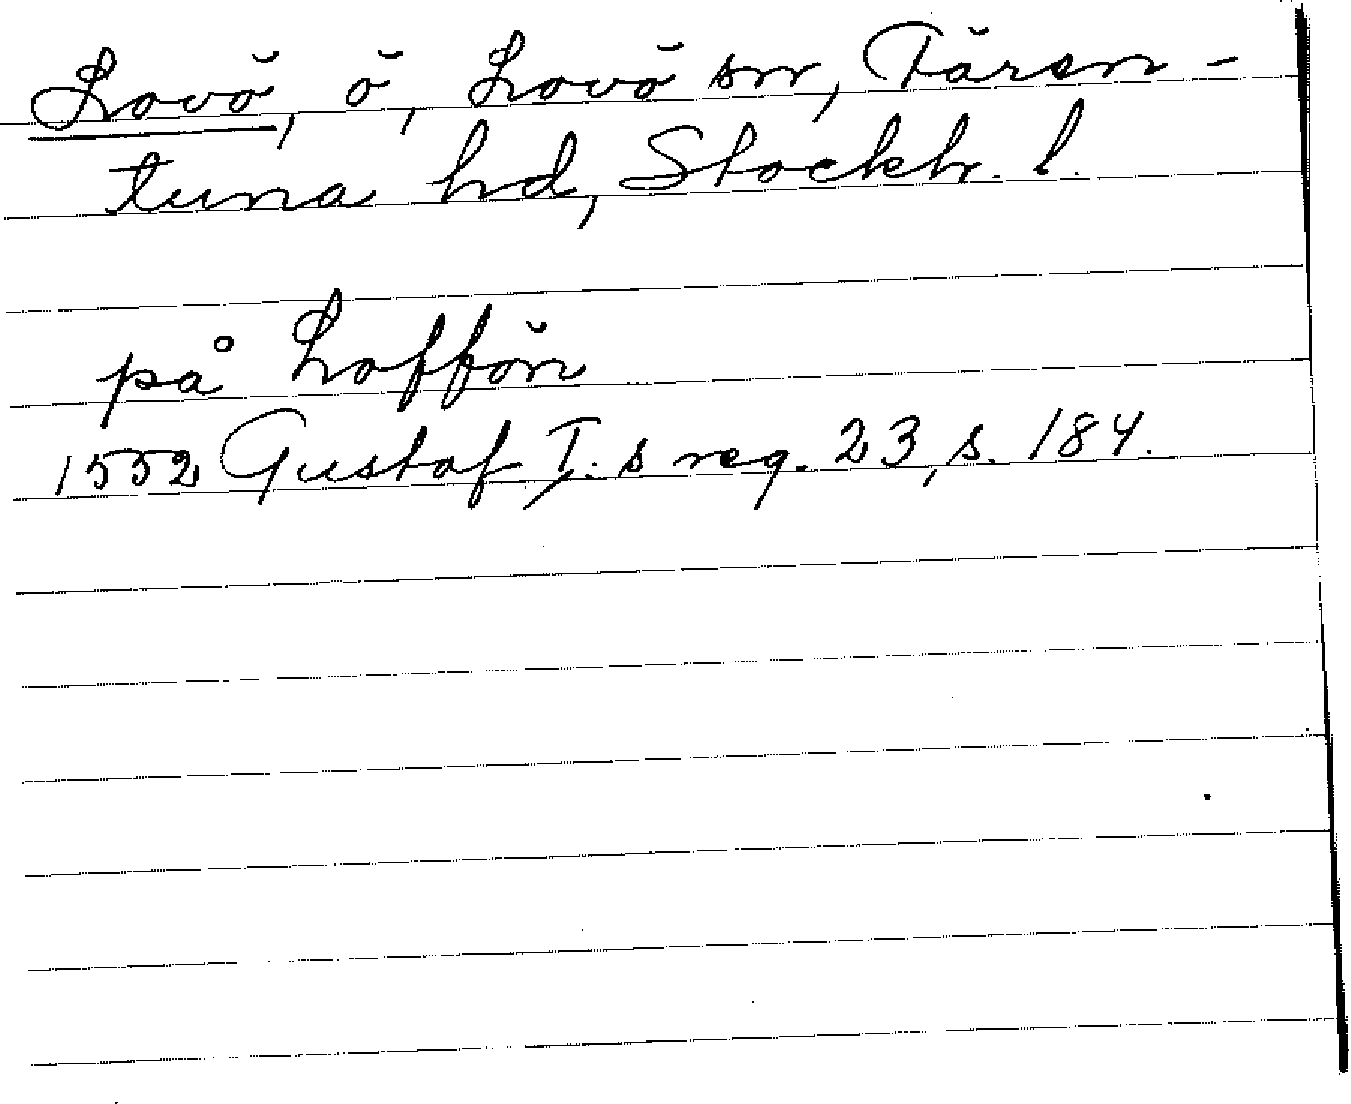 Lovö, ö, Lovö sn, Fären-
tuna hd, Stockh. l.
på Loffön
1552 Gustaf I:s reg. 23, s. 184.